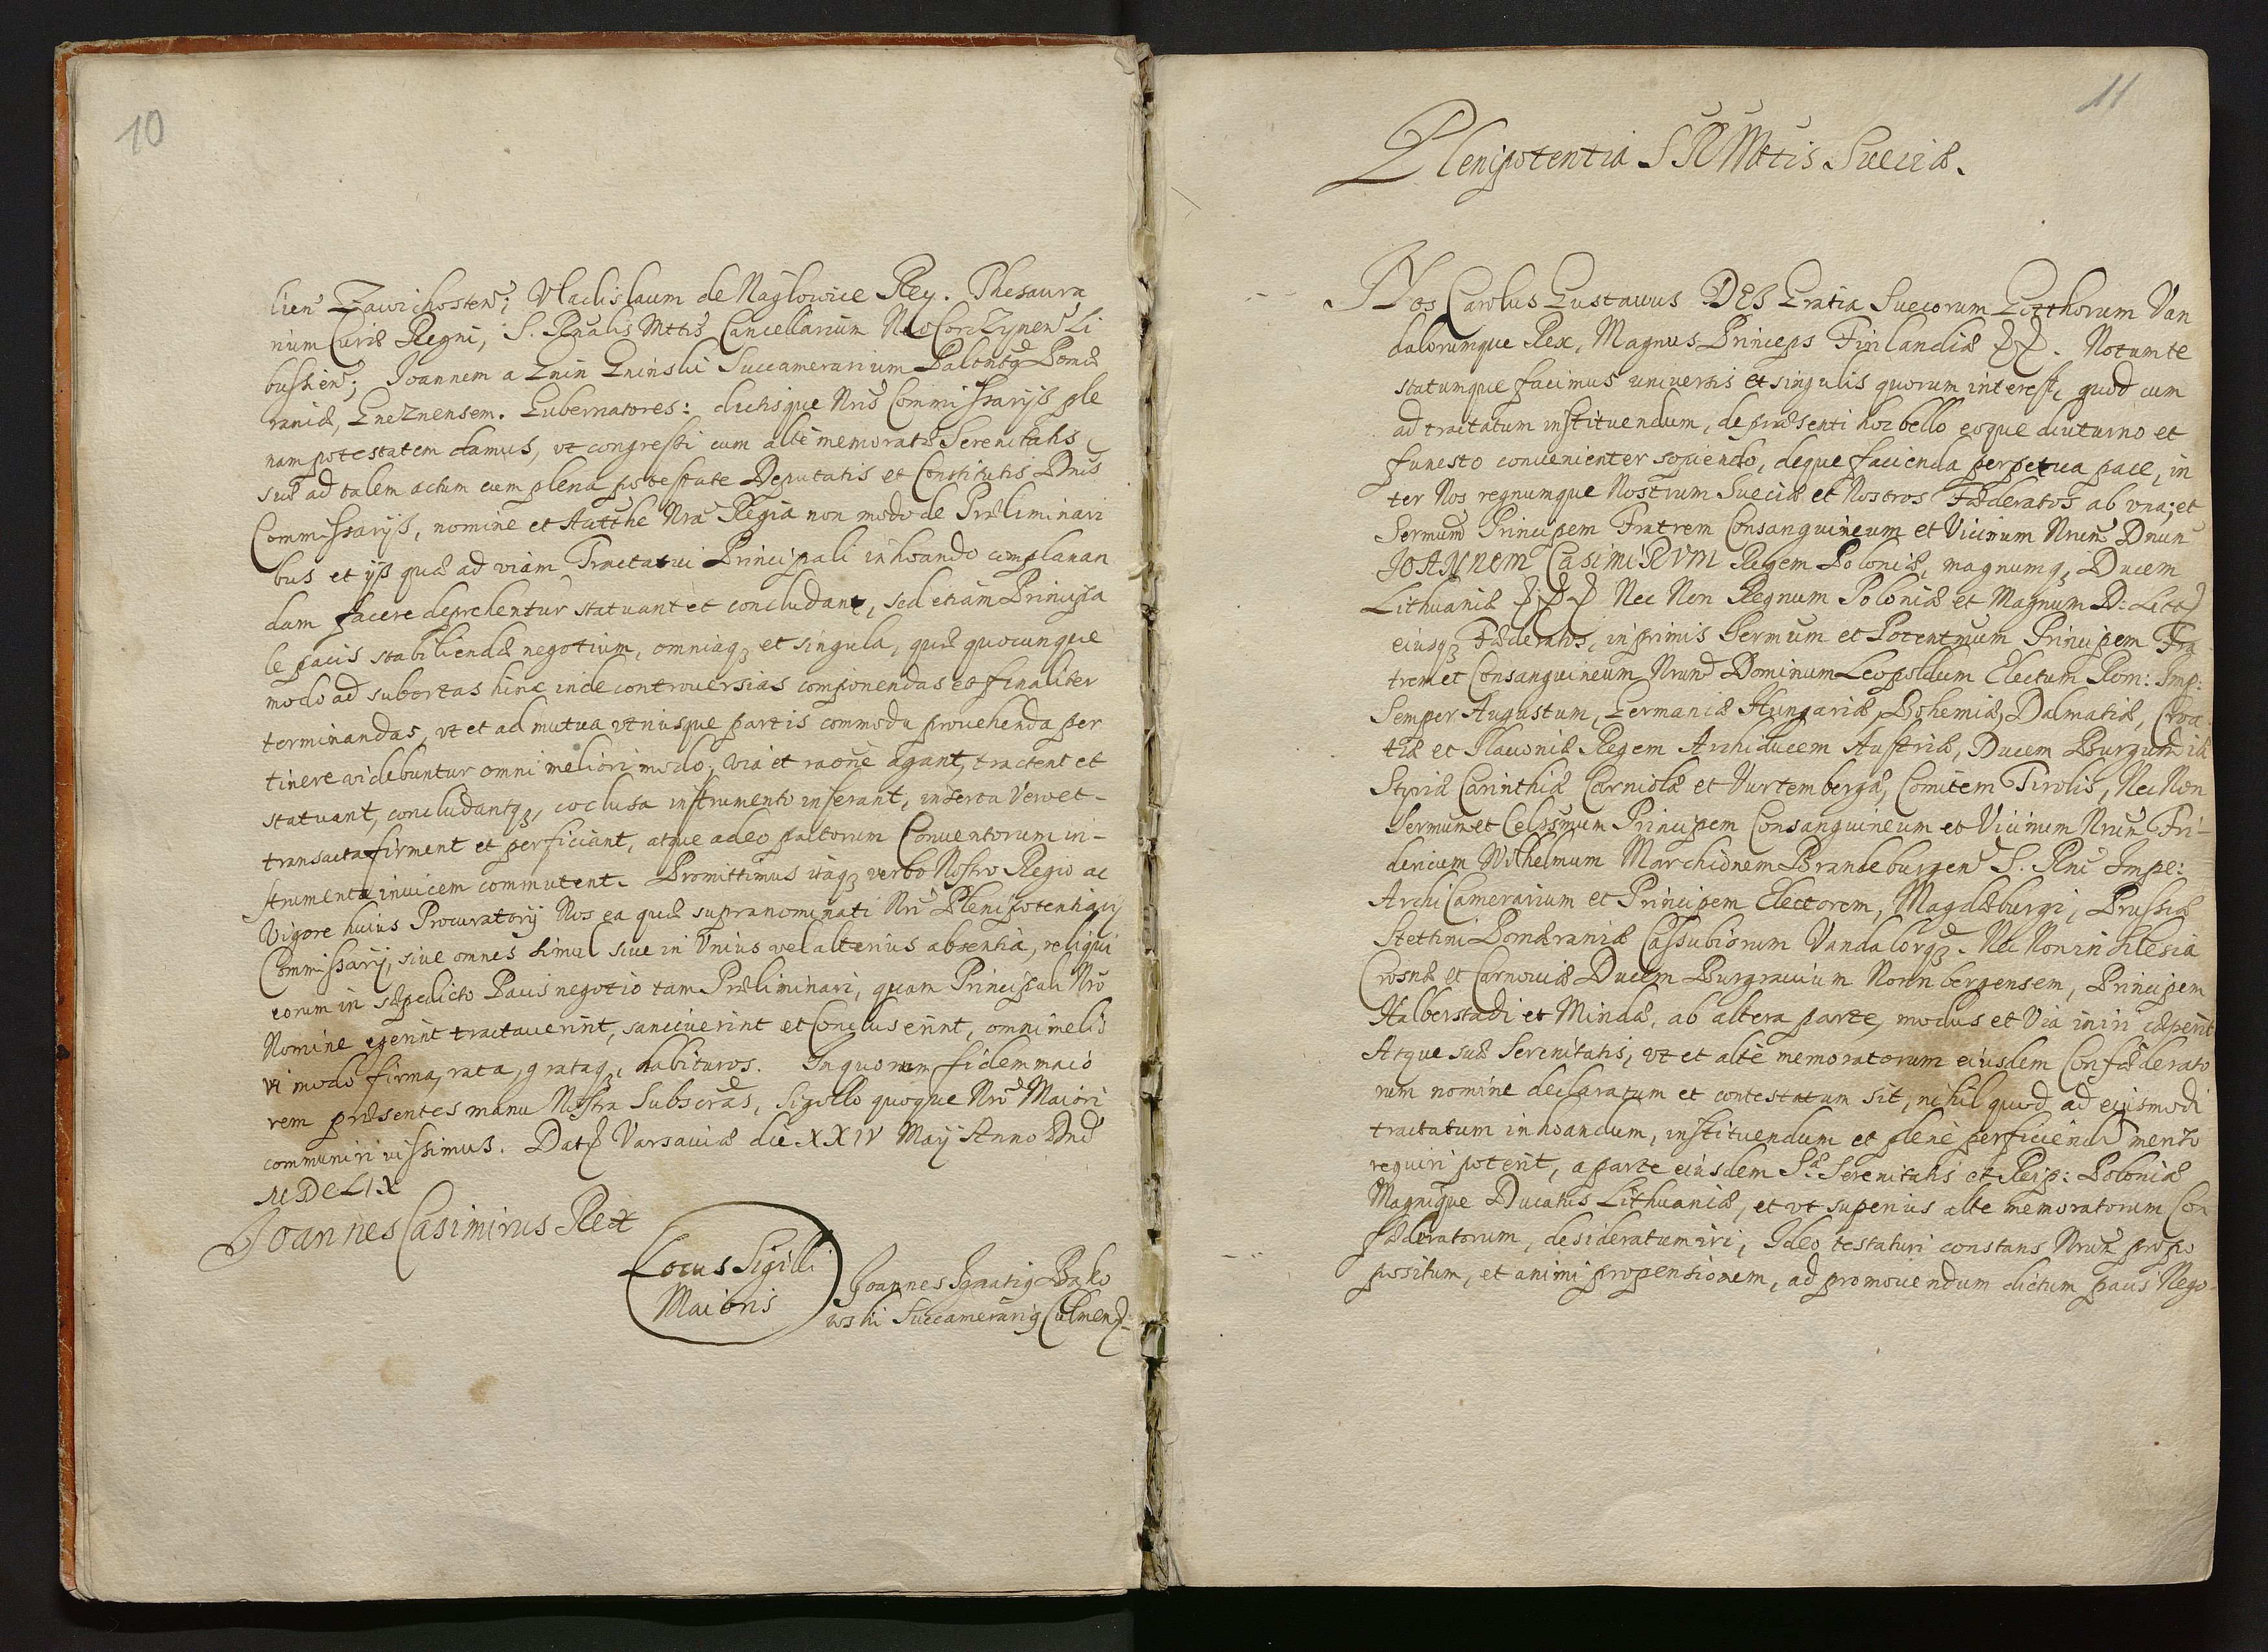 10
lień Zawichosteń; Vladislaum de Nagłowice Rey. Thesaura
rium Curiæ Regni, S. Rgalis Mttis Cancellarium NeoCorczyneń Li
busſień; Joannem a Gnin Gninski Succamerarium Palontq Pomæ
raniæ, Gneznensem. Gubernatores: dictisque Nris Commiſsarijs ple
nam potestatem damus, vt congreſsi cum alte memoratæ Serenitatis
suæ ad talem actum cum plena poteſtate Deputatis et Constitutis Dnis
Commiſsarijs, nomine et Autthe Nra Regia non modo de Præliminari
bus et ijs quæ ad viam Tractatui Principali inhoando complanan
dam facere deprehentur statuant et concludant, sed etiam Principa
le pacis stabiliendæ negotium, omniaq₃ et singula, quæ quocunque
modo ad subortas hinc inde controuersias componendas et finaliter
terminandas, vt et ad mutua vtriusque partis commoda prouehenda per
tinere videbuntur omni meliori modo, via et raone agant, tractent et
statuant, concludantq₃, coclusa inſtrumento inserant, inserta Vero et -
transacta firment et perficiant, atque adeo pactorum Conuentorum in-
ſtrumenta inuicem commutent. Promittimus itaq₃ verbo Noſtro Regio ac
Vigore huius Procuratorij Nos ea quæ supranominati Nri Plenipotentiarij
Commiſsarij, siue omnes simul siue in Vnius vel alterius absentia, reliqui
eorum in sæpedicto Pacis negotio tam Præliminari, quam Principali Nro
Nomine egerint tractauerint, sanciuerint et Concluserint, omni melio
ri modo firma, rata, grataq₃, habituros. In quorum fidem maio
rem præsentes manu Noſtra Subscras, Sigillo quoque Nro Maiori
communiri iussimus. Dat Varsauiæ die XXIV Maij Anno Dni
MDCLIX
Joannes Casimirus Rex
Locus Sigilli
Maioris
Joannes Ignatig Bąko
wski Succamerarig Culmens
11
Plenipotentia S R Mttis Sueciæ.
Nos Carolus Gustauus DEI Gratia Suecorum Gotthorum Van
dalorumque Rex, Magnus Princeps Finlandiæ. Notumte
statumque facimus uniuersis et singulis quorum intereſt, quod cum
ad tractatum inſtituendum, de præsenti hoc bello eoque diuturno et
funesto conuenienter sopiendo, deque facienda perpetua pace, in
ter Nos regnumque Nostrum Sueciæ et Nostros Fæderatos ab vna; et
Sermum Principem Fratrem Consanguineum et Vicinum Nrum Dnun
JOANNEM CASIMIRVM Regem Poloniæ, magnumq₃ Ducem
Lithuaniæ Nec Non Regnum Poloniæ et Magnum D: Litt
eiusq₃ Fæderatos, inprimis Sermum et Potentmum Principem Fra
trem et Consanguineum Nrum Dominum Leopoldum Electum Rom: Imp:
Semper Augustum, Germaniæ Hungariæ, Bohemiæ, Dalmatiæ, Croa
tiæ et Slauoniæ Regem Archiducem Auſtriæ, Ducem Burgundiæ
Styriæ Carinthiæ Carniolæ et Vurtembergæ, Comitem Tirolis, Nec Non
Sermum et Celssmum Principem Consanguineum et Vicinum Nrum Fri-
dericum Wilhelmum Marchionem Brandeburgeń S. Rni Impe:
Archi Camerarium et Principem Electorem, Magdæburgi, Pruſsiæ
Stettini Pomæraniæ Caſsubiorum Vandalorq₃. Nec Non in Silesia
Crosnæ et Carnouiæ Ducem Burgrauium Nornbergensem, Principem
Halberstadi et Mindæ, ab altera parte, modus et Via iniri cæperit
Atque suæ Serenitatis, vt et alte memoratorum eiusdem Confæderato
rum nomine declaratum et contestatum sit, nihil quod ad eiusmodi
tractatum inhoandum, inſtituendum et plene perficiendu merito
requiri poterit, a parte eiusdem Sæ Serenitatis et Reip: Poloniæ
Magnique Ducatus Lithuaniæ, et vt superius alte memoratorum Con
fæderatorum, desideratum iri, Ideo testaturi constans Nrum propo
positum, et animi propensionem, ad promouendum dictum pacis Nego-